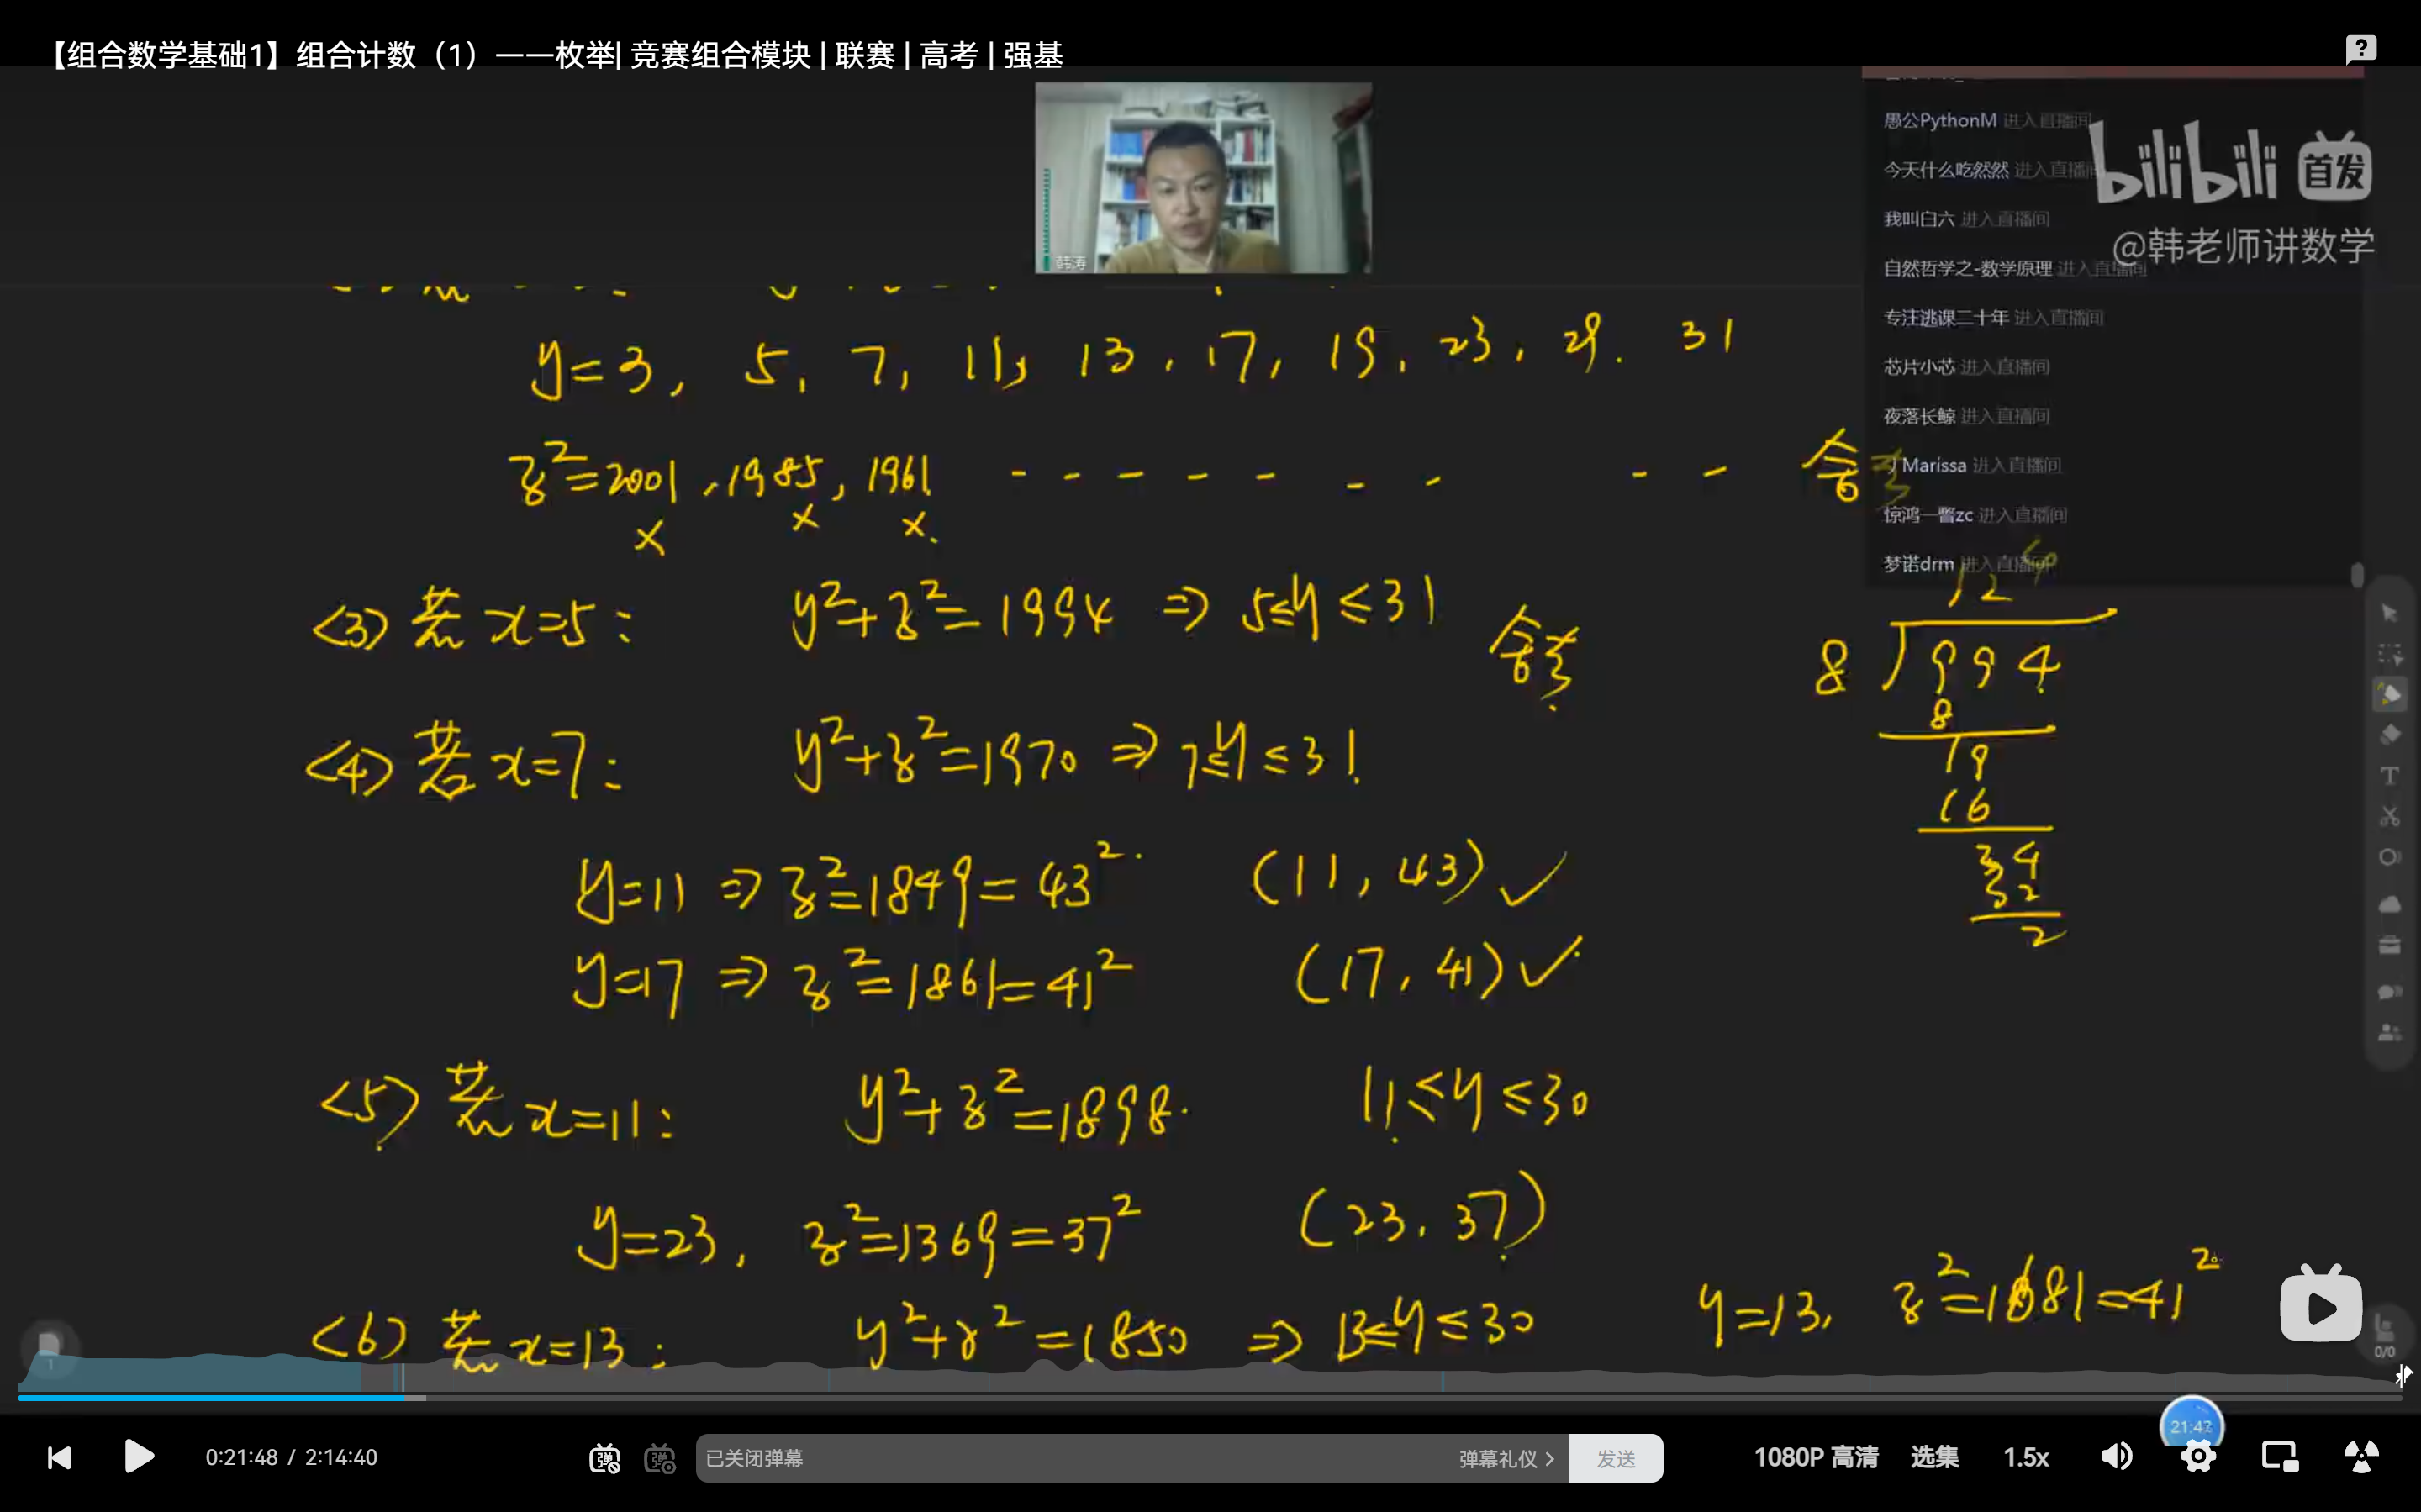 【组合数学基础1】组合计数（1）——枚举| 竞赛组合模块 | 联赛 | 高考 | 强基
愚公PythonM 进入直播间
今天什么吃然然 进入直播间
我叫白六 进入直播间
自然哲学之-数学原理 进入直播间
专注逃课二十年 进入直播间
芯片小芯 进入直播间
夜落长鲸 进入直播间
Marissa 进入直播间
惊鸿一瞥zc 进入直播间
梦诺drm 进入直播间
bilibili 首发
@韩老师讲数学
韩涛
y=3, 5, 7, 11, 13, 17, 19, 23, 29. 31
z²=2001, 1985, 1961. - - - - - - - - - 舍去
x x x.
<3> 若x=5: y²+z²=1994 ⇒ 5≤y≤31 舍去.
<4> 若x=7: y²+z²=1970 ⇒ 7≤y≤31.
y=11 ⇒ z²=1849=43². (11, 43) ✓
y=17 ⇒ z²=1861=41² (17, 41) ✓
<5> 若x=11: y²+z²=1898. 11≤y≤30
y=23, z²=1369=37² (23, 37)
<6> 若x=13: y²+z²=1850 ⇒ 13≤y≤30
y=13, z²=1681=41²
12
8 994
8
19
16
34
32
2
1
0/0
21:47
0:21:48 / 2:14:40
弹
弹
已关闭弹幕
弹幕礼仪 >
发送
1080P 高清
选集
1.5x